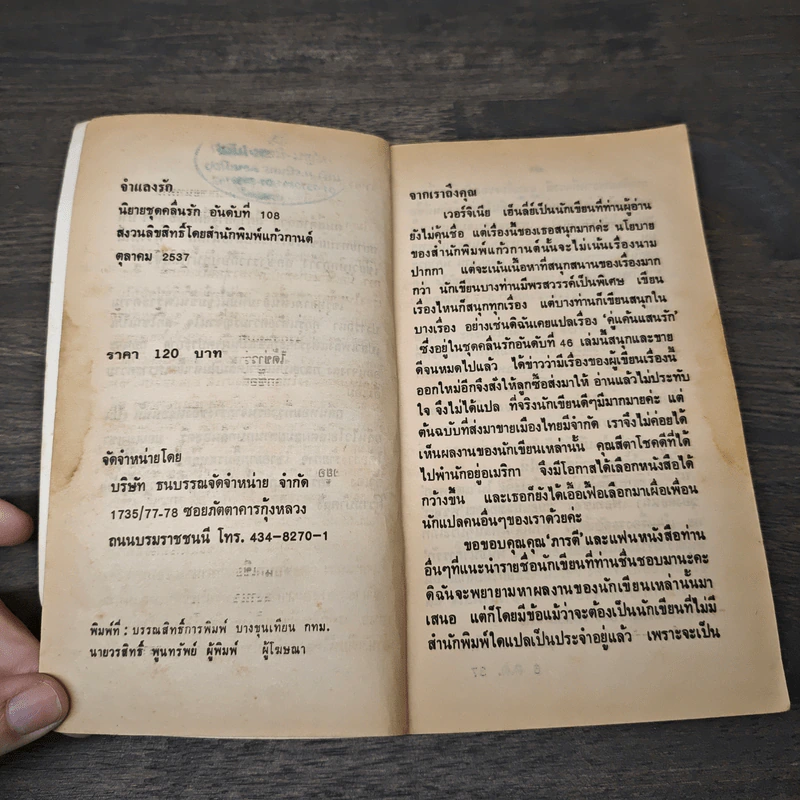 จำแลงรัก
นิยายชุดคลื่นรัก อันดับที่ 108
สงวนลิขสิทธิ์โดยสำนักพิมพ์แก้วกานต์
ตุลาคม 2537
ราคา 120 บาท
จัดจำหน่ายโดย
บริษัท ธนบรรณจัดจำหน่าย จำกัด
1735/77-78 ซอยภัตตาคารกุ้งหลวง
ถนนบรมราชชนนี โทร. 434-8270-1
พิมพ์ที่ : บรรณสิทธิ์การพิมพ์ บางขุนเทียน กทม.
นายวรสิทธิ์ พูนทรัพย์ ผู้พิมพ์ ผู้โฆษณา
จากเราถึงคุณ
เวอร์จิเนีย เฮ็นลี่ย์เป็นนักเขียนที่ท่านผู้อ่าน
ยังไม่คุ้นชื่อ แต่เรื่องนี้ของเธอสนุกมากค่ะ นโยบาย
ของสำนักพิมพ์แก้วกานต์นั้นจะไม่เน้นเรื่องนาม
ปากกา แต่จะเน้นเนื้อหาที่สนุกสนานของเรื่องมาก
กว่า นักเขียนบางท่านมีพรสวรรค์เป็นพิเศษ เขียน
เรื่องไหนก็สนุกทุกเรื่อง แต่บางท่านก็เขียนสนุกใน
บางเรื่อง อย่างเช่นดิฉันเคยแปลเรื่อง 'คู่แค้นแสนรัก'
ซึ่งอยู่ในชุดคลื่นรักอันดับที่ 46 เล่มนี้สนุกและขาย
ดีจนหมดไปแล้ว ได้ข่าวว่ามีเรื่องของผู้เขียนเรื่องนี้
ออกใหม่อีกจึงสั่งให้ลูกซื้อส่งมาให้ อ่านแล้วไม่ประทับ
ใจ จึงไม่ได้แปล ที่จริงนักเขียนดีๆมีมากมายค่ะ แต่
ต้นฉบับที่ส่งมาขายเมืองไทยมีจำกัด เราจึงไม่ค่อยได้
เห็นผลงานของนักเขียนเหล่านั้น คุณสีตาโชคดีที่ได้
ไปพำนักอยู่อเมริกา จึงมีโอกาสได้เลือกหนังสือได้
กว้างขึ้น และเธอก็ยังได้เอื้อเฟื้อเลือกมาเผื่อเพื่อน
นักแปลคนอื่นๆของเราด้วยค่ะ
ขอขอบคุณคุณ'ภารตี'และแฟนหนังสือท่าน
อื่นๆที่แนะนำรายชื่อนักเขียนที่ท่านชื่นชอบมานะคะ
ดิฉันจะพยายามหาผลงานของนักเขียนเหล่านั้นมา
เสนอ แต่ก็โดยมีข้อแม้ว่าจะต้องเป็นนักเขียนที่ไม่มี
สำนักพิมพ์ใดแปลเป็นประจำอยู่แล้ว เพราะจะเป็น